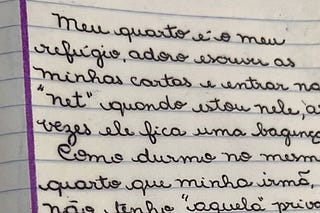 Meu quarto é o meu
refúgio, adoro escrever as
minhas cartas e entrar na
"net" quando estou nele, as
vezes ele fica uma bagunça
Como durmo no mesm
quarto que minha irmã,
não tenho "aquela" priva